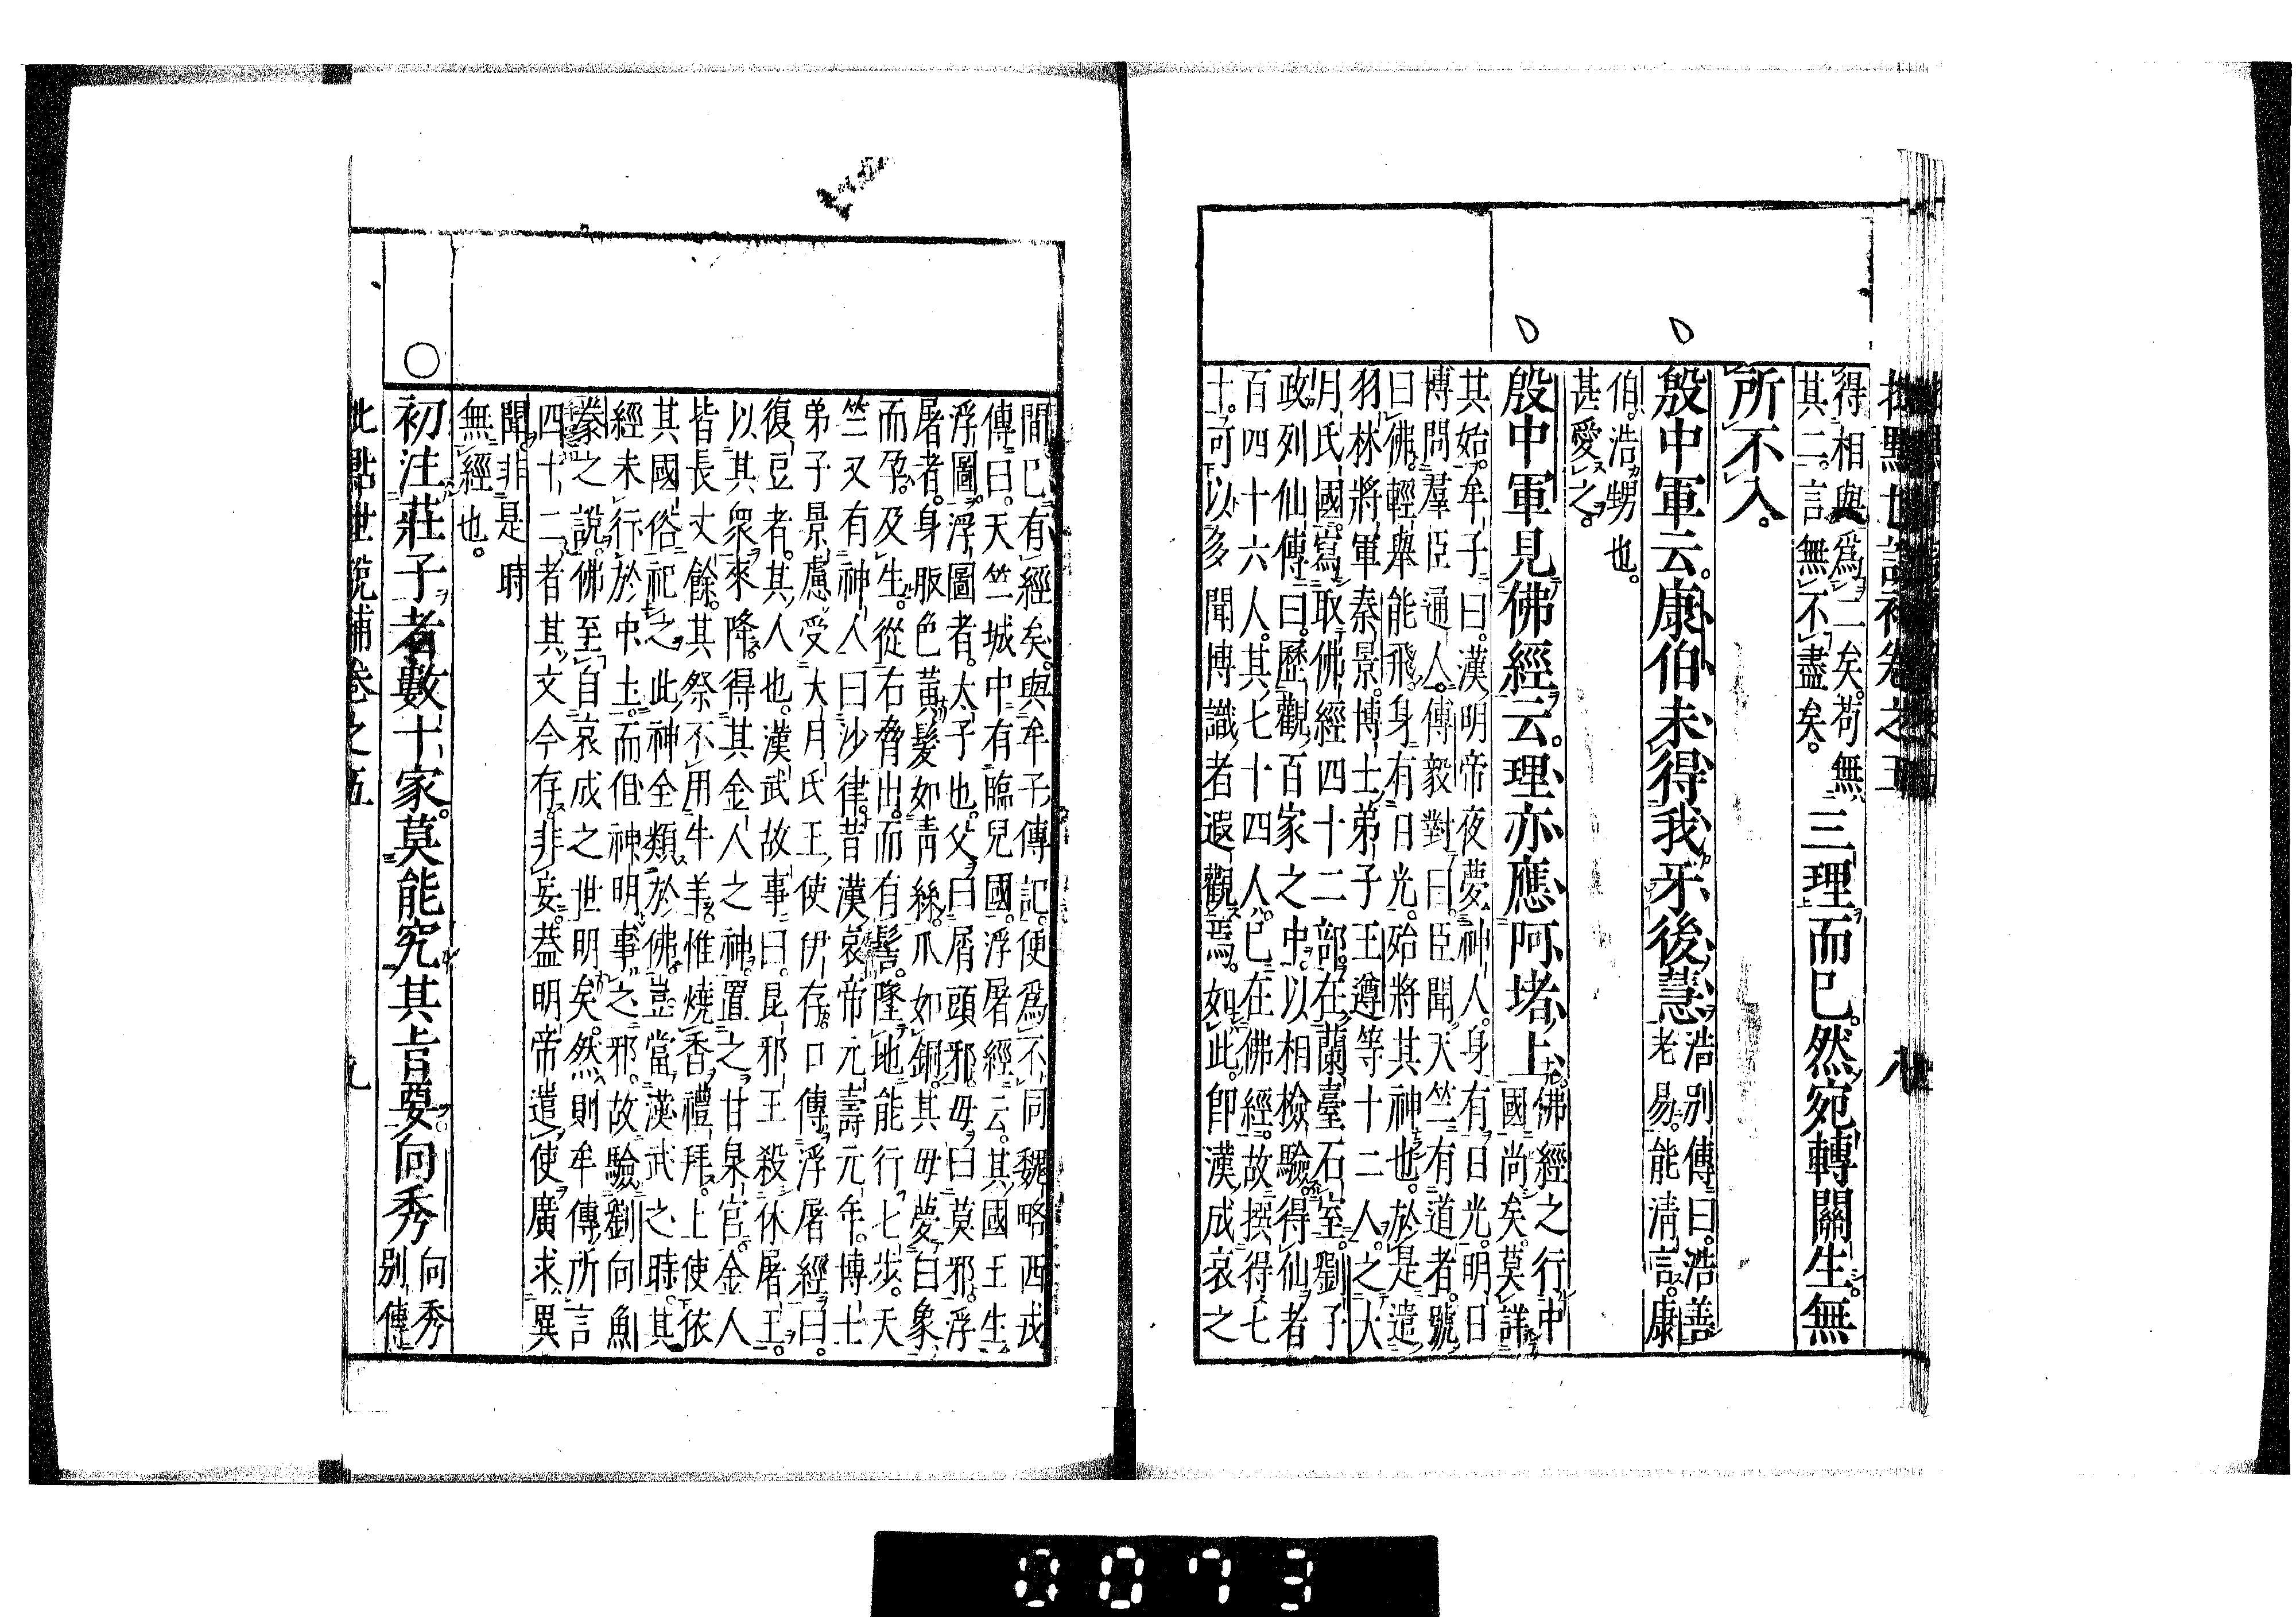 批點世說補卷之五 八
得相與爲二矣。苟無
其二。言無不盡矣。
三理而已。然宛轉關生。無
所不入。
殷中軍云。康伯未得我牙後慧。
浩別傳曰。浩善
老易。能淸言。康
伯。浩甥也。
甚愛之。
殷中軍見佛經云。理亦應阿堵上。
佛經之行中
國尚矣。莫詳
其始。牟子曰。漢明帝夜夢神人。身有日光。明日
博問羣臣。通人傅毅對曰。臣聞天竺有道者。號
曰佛。輕舉能飛。身有日光。殆將其神也。於是遣
羽林將軍秦景。博士弟子王遵等十二人。之大
月氏國。寫取佛經四十二部。在蘭臺石室。劉子
政列仙傳曰。歷觀百家之中。以相檢驗。得仙者
百四十六人。其七十四人。已在佛經。故撰得七
十。可以多聞博識者遐觀焉。如此。卽漢成哀之
間。已有經矣。與牟子傳記。便爲不同。魏略西戎
傳曰。天竺城中有臨兒國。浮屠經云。其國王生
浮圖。浮圖者。太子也。父曰屑頭邪。母曰莫邪。浮
屠者。身服色黃。髮如靑絲。爪如銅。其母夢白象
而孕。及生。從右脅出。而有髻。墜地能行七步。天
竺又有神人曰沙律。昔漢哀帝元壽元年。博士
弟子景慮。受大月氏王使伊存口傳浮屠經曰。
復豆者。其人也。漢武故事曰。昆邪王殺休屠王。
以其衆來降。得其金人之神。置之甘泉宮。金人
皆長丈餘。其祭不用牛羊。惟燒香禮拜。上使依
其國俗祀之。此神全類於佛。豈當漢武之時。其
經未行於中土。而但神明事之邪。故驗劉向魚
豢之說。佛至自哀成之世明矣。然則牟傳所言
四十二者。其文今存。非妄。蓋明帝遣使廣求異
聞。非是時
無經也。
初注莊子者數十家。莫能究其旨要。向秀
向秀
別傳
批點世說補卷之五 九
0073